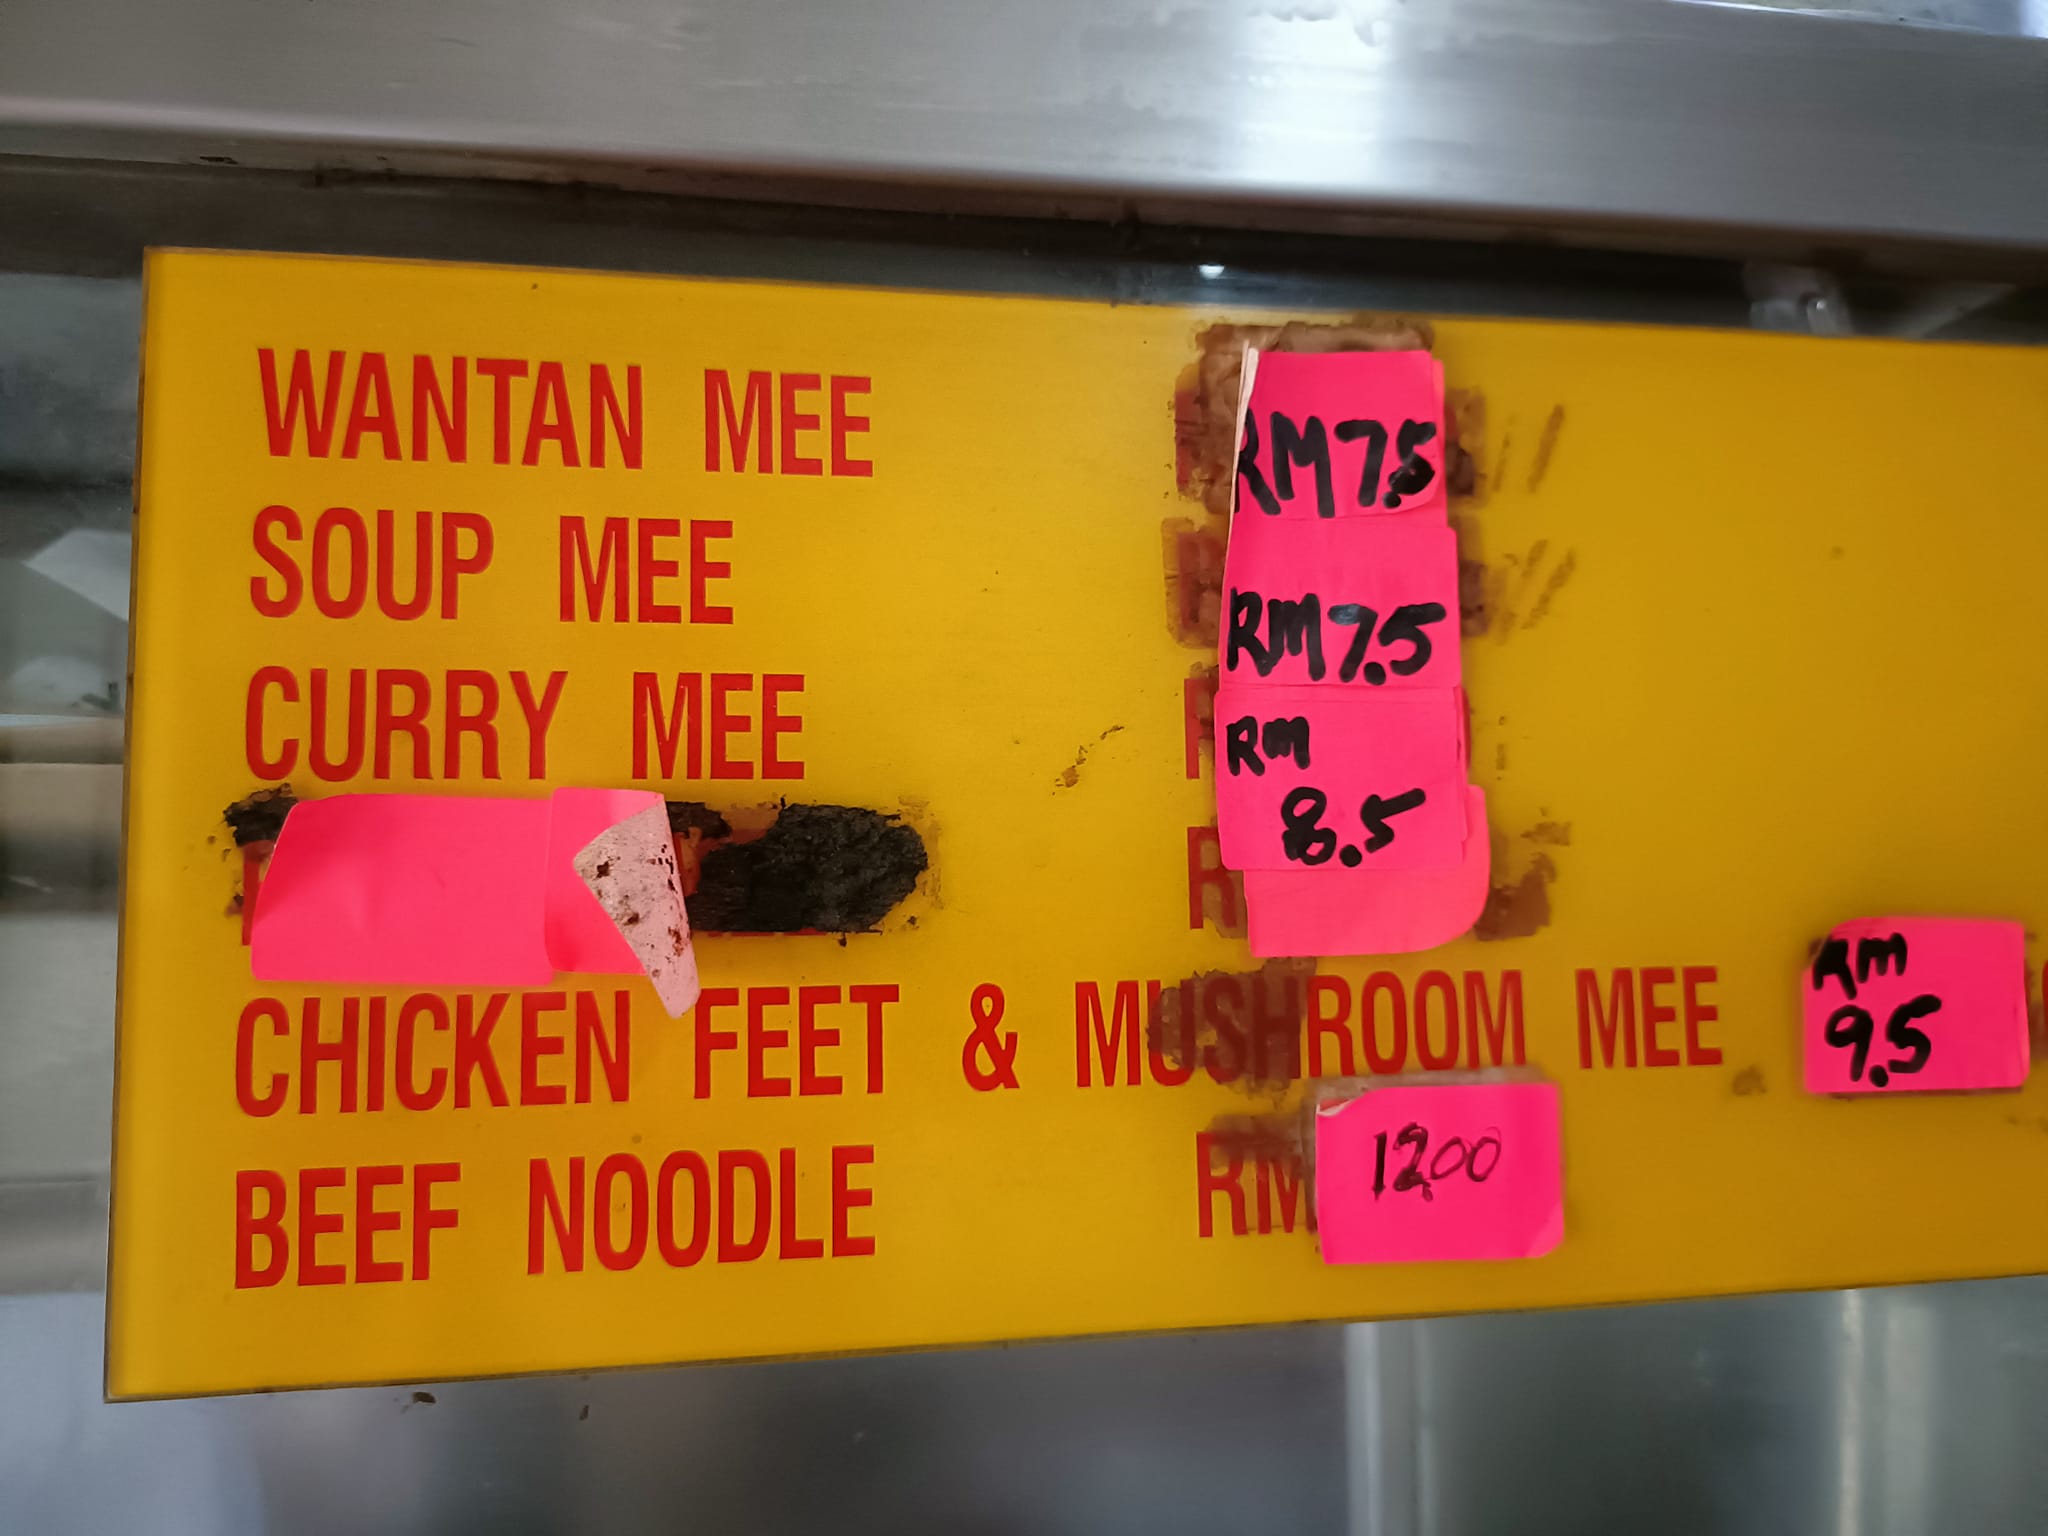 WANTAN MEE RM7.5
SOUP MEE RM7.5
CURRY MEE RM 8.5
CHICKEN FEET & MUSHROOM MEE RM 9.5
BEEF NOODLE RM 12.00